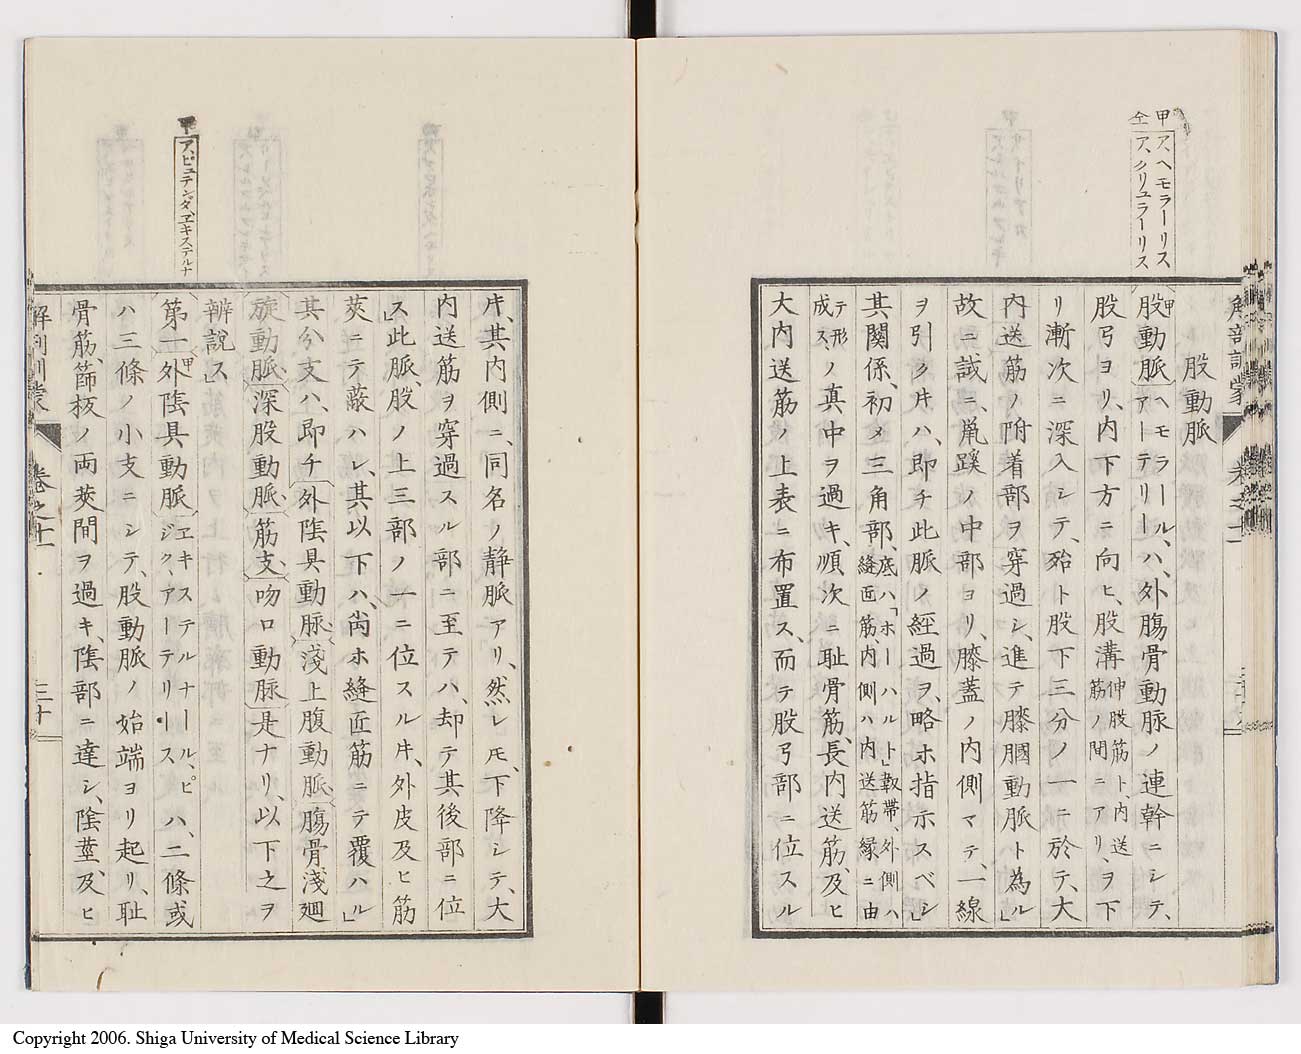 甲 ア、ヘモラーリス
仝 ア、クリュラーリス
股動脈
股動脈ヘモラール、アーテリーハ、外腸骨動脉ノ連幹ニシテ、
股弓ヨリ、内下方ニ向ヒ、股溝伸股筋ト、内送筋ノ間ニアリ、ヲ下
リ漸次ニ深入シテ、殆ト股下三分ノ一ニ於テ、大
内送筋ノ附着部ヲ穿過シ、進テ膝膕動脈ト為ル」
故ニ試ニ、鼠蹊ノ中部ヨリ、膝蓋ノ内側マテ、一線
ヲ引ク片ハ、即チ此脈ノ經過ヲ、略ホ指示スベシ」
其関係、初メ三角部、底ハ「ホーハルト」靱帯、外側ハ縫匠筋、内側ハ内送筋縁ニ由
テ形成スノ真中ヲ過キ、順次ニ耻骨筋、長内送筋、及ヒ
大内送筋ノ上表ニ布置ス、而テ股弓部ニ位スル
解剖訓蒙 巻之十一
甲 ア、ピュデンダ、ヱキステルナ
片、其内側ニ、同名ノ静脈アリ、然レ𪜈、下降シテ、大
内送筋ヲ穿過スル部ニ至テハ、却テ其後部ニ位
ス」此脈、股ノ上三部ノ一ニ位スル片、外皮及ヒ筋
莢ニテ蔽ハレ、其以下ハ、尚ホ縫匠筋ニテ覆ハル」
其分支ハ、即チ外陰具動脈、淺上腹動脈、腸骨淺廻
旋動脈、深股動脈、筋支、吻口動脈是ナリ、以下之ヲ
辨説ス」
第一外陰具動脈ヱキステルナール、ピジクアーテリースハ、二條或
ハ三條ノ小支ニシテ、股動脈ノ始端ヨリ起リ、耻
骨筋、篩板ノ両莢間ヲ過キ、陰部ニ達シ、陰莖、及ヒ
解剖訓蒙 巻之十一 三十
Copyright 2006. Shiga University of Medical Science Library